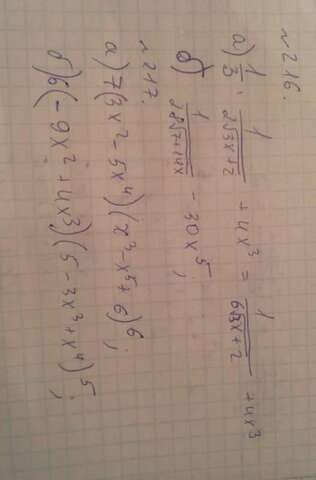 №216.
а) 1/3 · 1/(2√(3x+2)) + 4x³ = 1/(6√(3x+2)) + 4x³
б) 1/(2√(7+14x)) - 30x⁵;
№217.
а) 7(3x² - 5x⁴)(x³ - x⁵ + 6)⁶;
б) 6(-9x² + 4x³)(5 - 3x³ + x⁴)⁵;